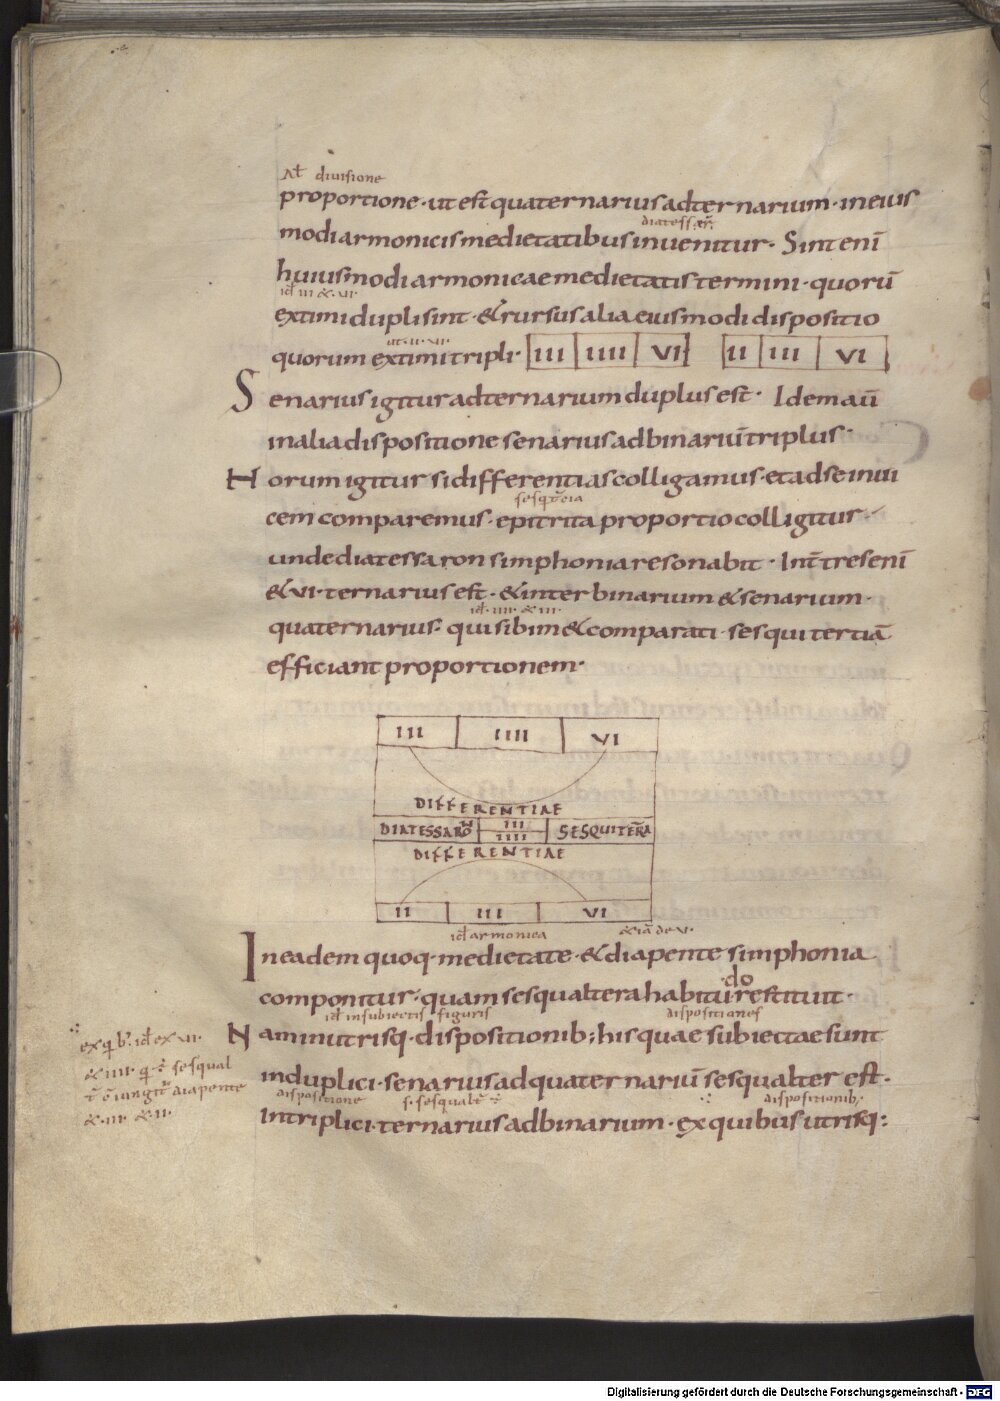 Al̄ diuisione
proportione · ut est quaternarius ad ternarium · in eius
diatessar̄
modi armonicis medietatibus inuenitur · Sint enī
huiusmodi armonicae medietatis termini · quorū
id̄ III & VI
extimi dupli sint · & rursus alia eiusmodi dispositio
ut · II · VI ·
quorum extimi tripli · III IIII VI II III VI
Senarius igitur ad ternarium duplus est · Idem aū
in alia dispositione senarius ad binariū triplus ·
Horum igitur si differentias colligamus · et ad se inui
sesqt̄cia
cem comparemus · epitrita proportio colligitur
unde diatessaron simphonia resonabit · Int̄ tres enī
& VI · ternarius est · & inter binarium & senarium ·
id̄ · IIII · & III ·
quaternarius · qui sibimet comparati · sesquitertiā
efficiant proportionem ·
III IIII VI
DIFFERENTIAE
DIATESSARON III IIII SESQUITER̄A
DIFFERENTIAE
II III VI
id̄ armonica
In eadem quoq· medietate · & diapente simphonia
do
componitur · quam sesqualtera habitu restituit ·
id̄ in subiectis figuris dispositiones
Nam in utrisq· dispositionib; his quae subiectae sunt
in duplici · senarius ad quaternariū sesqualter est ·
dispositione s· sesqualt̄ ē dispositionib;
in triplici · ternarius ad binarium · ex quibus utrisq:
id̄ ex VI ·
& IIII · sesqual
iungit̄ diapente
& · III · & · II ·
Digitalisierung gefördert durch die Deutsche Forschungsgemeinschaft - DFG